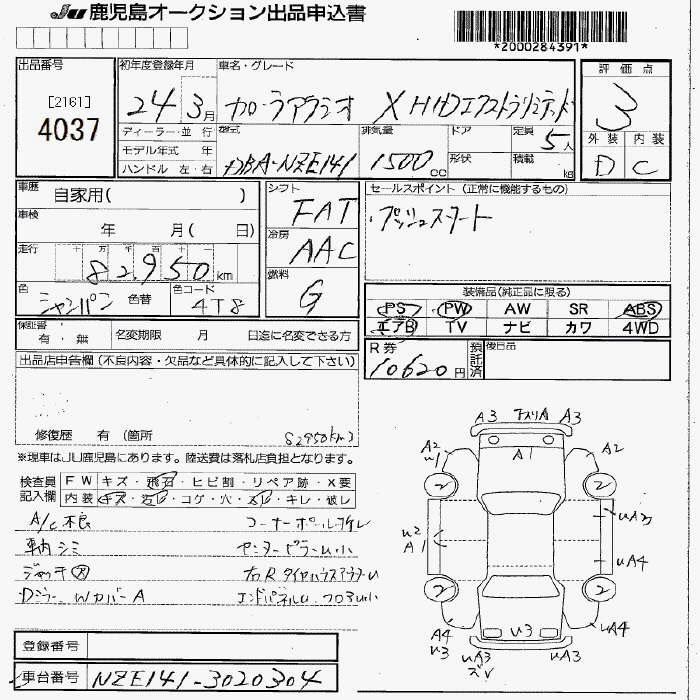 JU 鹿児島オークション出品申込書
*2000284391*
出品番号
[2161]
4037
初年度登録年月
24 3月
車名・グレード
カローラアクシオ X HIDエクストラリミテッド
評価点
3
外装 内装
D C
ディーラー・並行
モデル年式 年
ハンドル 左・右
型式
DBA-NZE141
排気量
1500cc
ドア
形状
定員
5人
積載
kg
車歴
自家用( )
車検
年 月( 日)
走行
十 万 千 百 十 一
82,950km
色
シャンパン
色替
色コード
4T8
シフト
FAT
冷房
AAC
燃料
G
セールスポイント (正常に機能するもの)
・プッシュスタート
装備品(純正品に限る)
PS PW AW SR ABS
エアB TV ナビ カワ 4WD
保証書
有・無
名変期限 月 日迄に名変できる方
R券
10620円
預託済
後日品
出品店申告欄 (不良内容・欠品など具体的に記入して下さい)
修復歴 有 (箇所
82950km)
※現車はJU鹿児島にあります。陸送費は落札店負担となります。
検査員記入欄
FW キズ・飛石・ヒビ割・リペア跡・X要
内装 キズ・汚レ・コゲ・穴・スレ・キレ・破レ
A/c不良
コーナーポール折レ
車内シミ
センターピラーU小
ジャッキ欠
右RタイヤハウスアウターU
Dミラー Wカバー A
エンドパネルU フロアU小
登録番号
車台番号
NZE141-3020304
A3 スリA A3
A2
U1
A1
A2
2 2
U2
A1
UA3
UA4
2 2
A4
U3
U3
UA4
UA3
ズレ
UA3